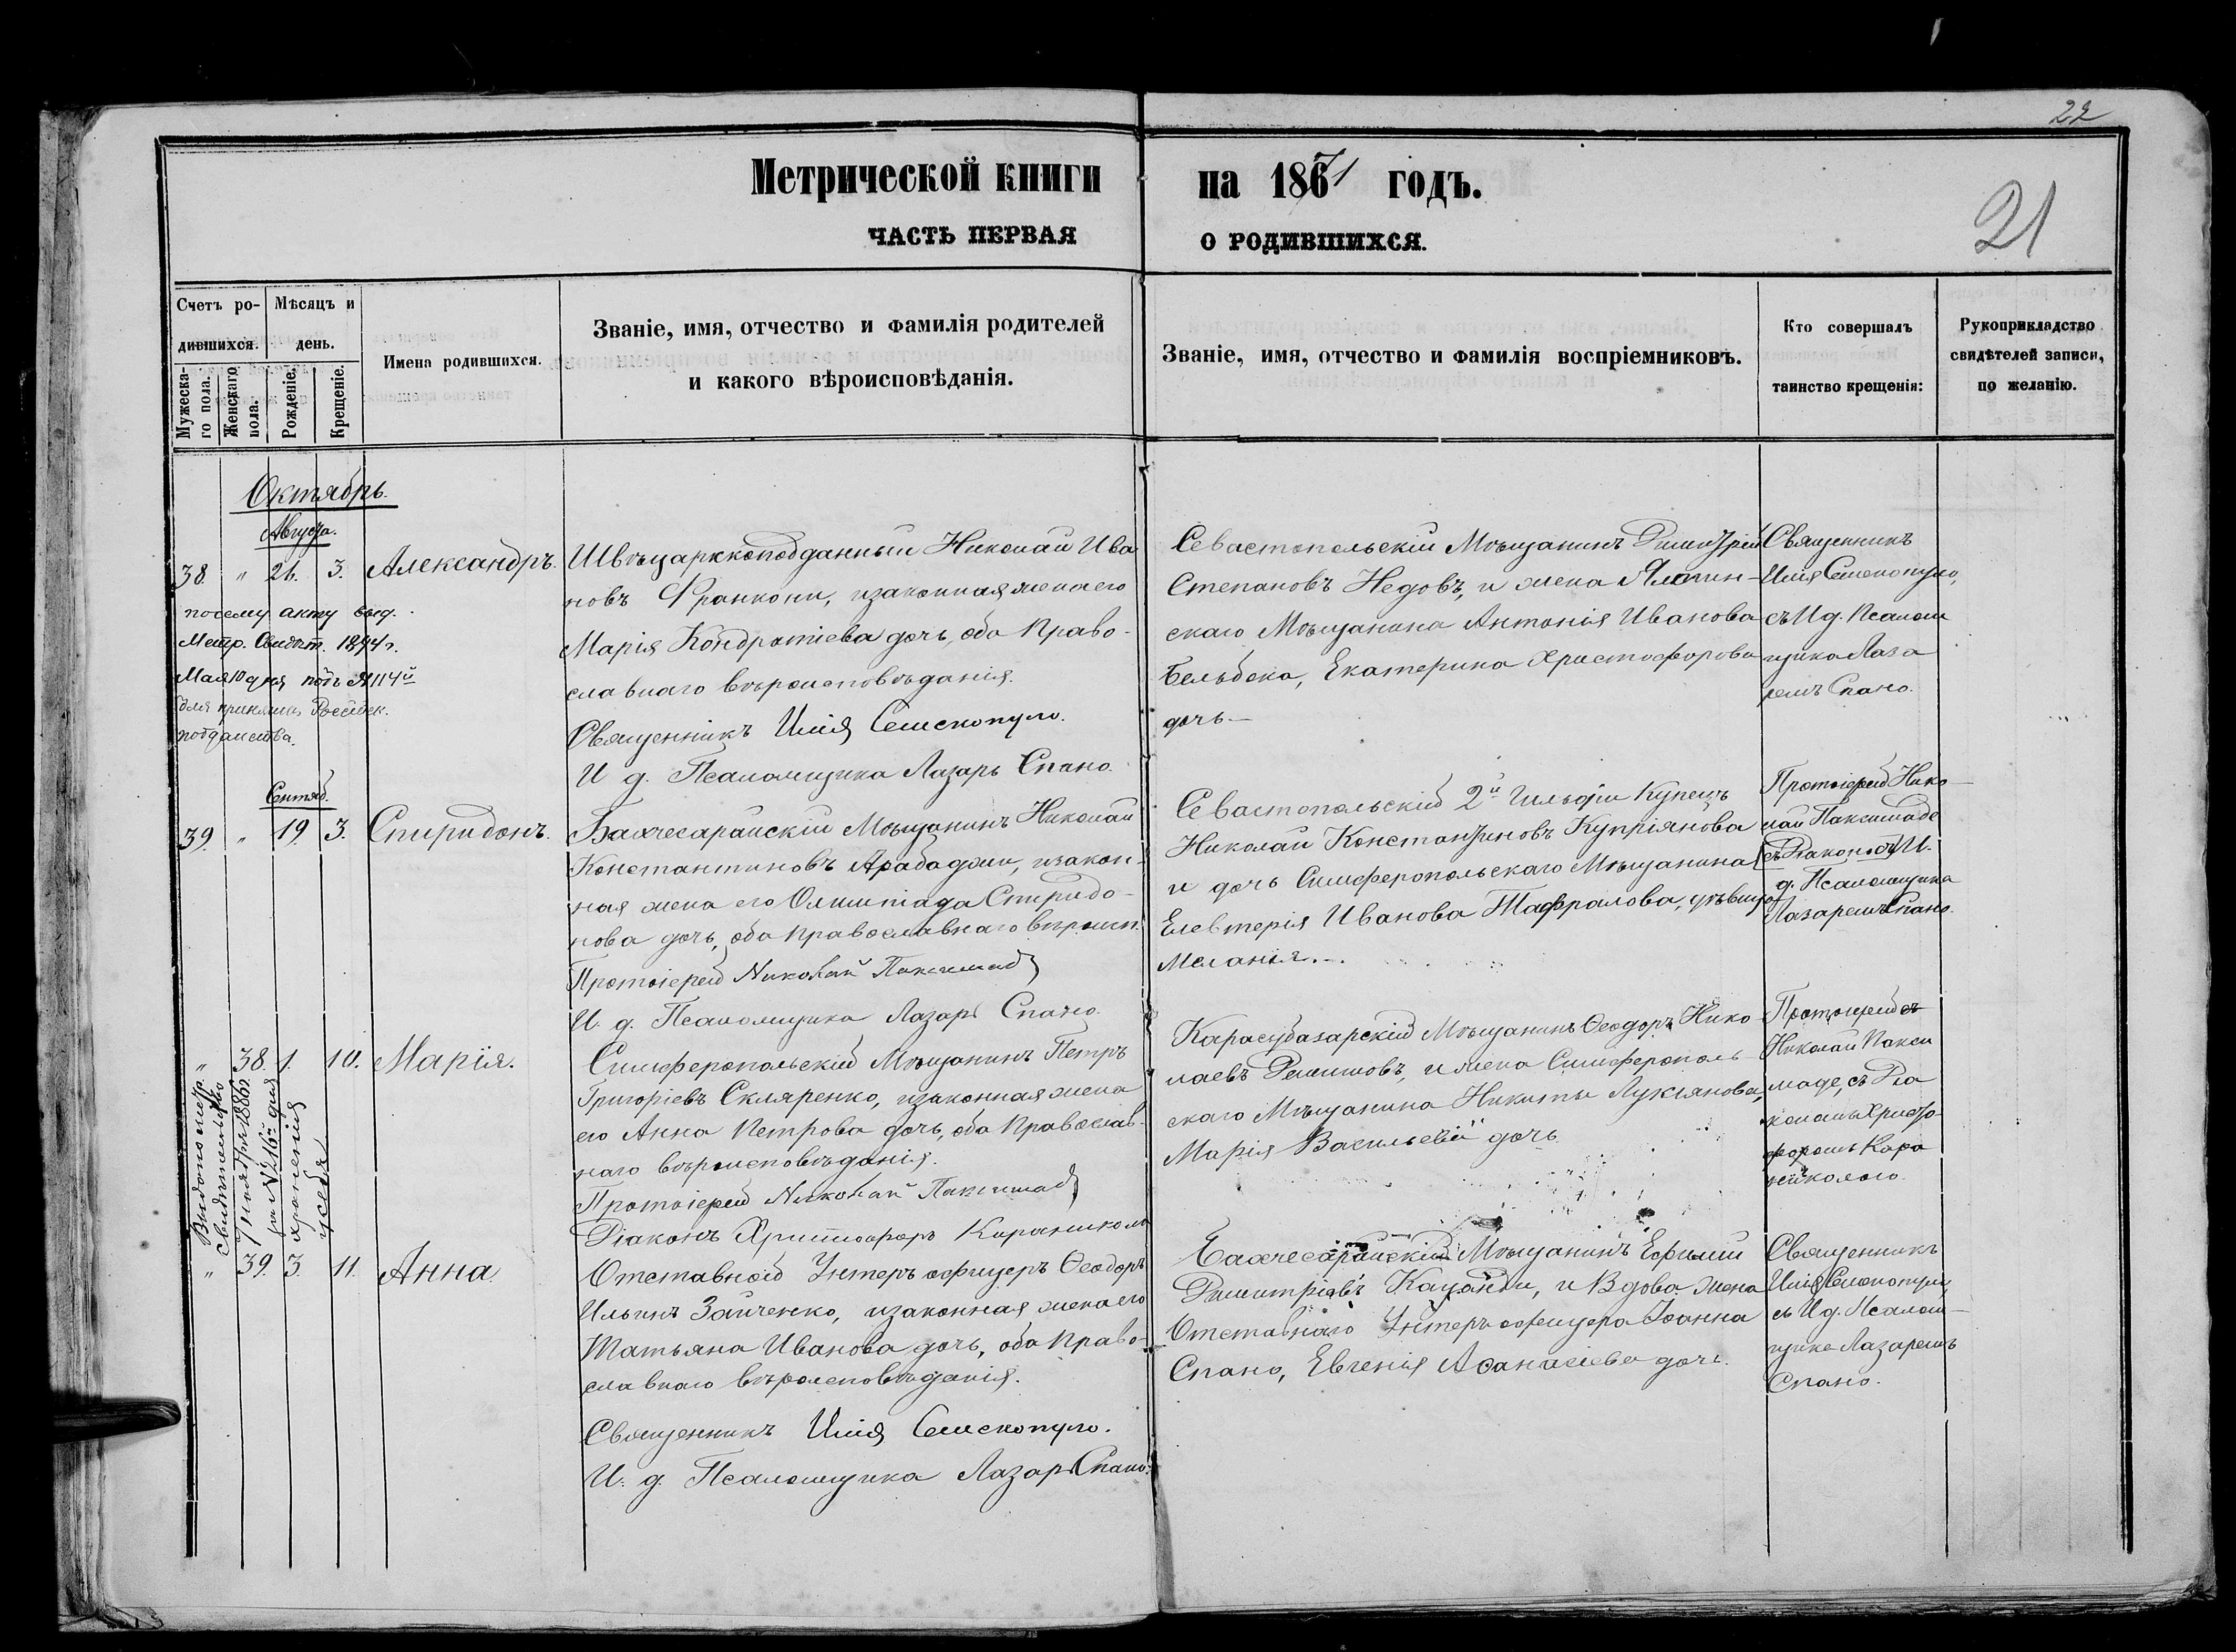 22
21
Метрической книги на 1871 годъ.
ЧАСТЬ ПЕРВАЯ О РОДИВШИХСЯ.
Счетъ ро-
дившихся.
Мужеска-
го пола.
Женскаго
пола.
Мѣсяцъ и
день.
Рожденіе.
Крещеніе.
Имена родившихся.
Званіе, имя, отчество и фамилія родителей
и какого вѣроисповѣданія.
Званіе, имя, отчество и фамилія воспріемниковъ.
Кто совершалъ
таинство крещенія:
Рукоприкладство
свидѣтелей записи,
по желанію.
Октябрь.
Августа.
38 " 26. 3. Александръ.
посему акту выд.
Метр. Свидѣт. 1894 г.
Мая 10 дня подъ № 114й
для принятія Россійск.
подданства.
Швѣцаркоподданный Николай Ива
новъ Франкони, и законная жена его
Марія Кондратіева дочь, оба Право-
славнаго вѣроисповѣданія.
Священникъ Илія Семскопуло.
И д. Псаломщика Лазарь Спано.
Севастопольскій Мѣщанинъ Димитрій
Степановъ Недовъ, и жена Ялтин-
скаго Мѣщанина Антонія Иванова
Бельбека, Екатерина Христофорова
дочь.—
Священникъ
Илія Семскопуло,
съ И д. Псалом
щика Лаза
ремъ Спано.
Сентяб.
39. " 19. 3. Спиридонъ.
Бахчесарайскій Мѣщанинъ Николай
Константиновъ Арабаджи, и закон-
ная жена его Олимпіада Спиридо-
нова дочь, оба Православнаго вѣроисп.
Протоіерей Николай Паксимад
И. д. Псаломщика Лазарь Спано.
Севастопольскій 2й Гильдіи Купецъ
Николай Константиновъ Купріянова
и дочь Симферопольскаго Мѣщанина
Елевтерія Иванова Тафралова, дѣвица
Меланія.—.
Протоіерей Нико-
лай Паксимаде
съ Діаконо И.
д. Псаломщика
Лазаремъ Спано.
" 38. 1. 10. Марія.
Выдано метр.
свидѣтельство
1886 г.
за № 216 для
храненія
у себя
Симферопольскій Мѣщанинъ Петръ
Григоріевъ Скляренко, и законная жена
его Анна Петрова дочь, оба Православ-
наго вѣроисповѣданія.
Протоіерей Николай Паксимад
Діаконъ Христофоръ Караникола
Карасубазарскій Мѣщанинъ Ѳеодоръ Нико
лаевъ , и жена Симферополь
скаго Мѣщанина Никиты Лукіянова,
Марія Васильева дочь
Протоіерей
Николай Пакси
маде, съ Діа
кономъ Христо-
форомъ Кара
николою.
" 39. 3. 11. Анна.
Отставной Унтеръ офицеръ Ѳеодоръ
Ильинъ Зайченко, и законная жена его
Татьяна Иванова дочь, оба Право-
славнаго вѣроисповѣданія.
Священникъ Илія Семскопуло.
И. д. Псаломщика Лазарь Спано.
Бахчесарайскій Мѣщанинъ Ефимій
Димитріевъ , и Вдова жена
Отставнаго Унтеръ офицера Іоанна
Спано, Евгенія Аѳанасіева дочь.
Священникъ
Илія Семскопуло,
съ И д. Псалом-
щика Лазаремъ
Спано.